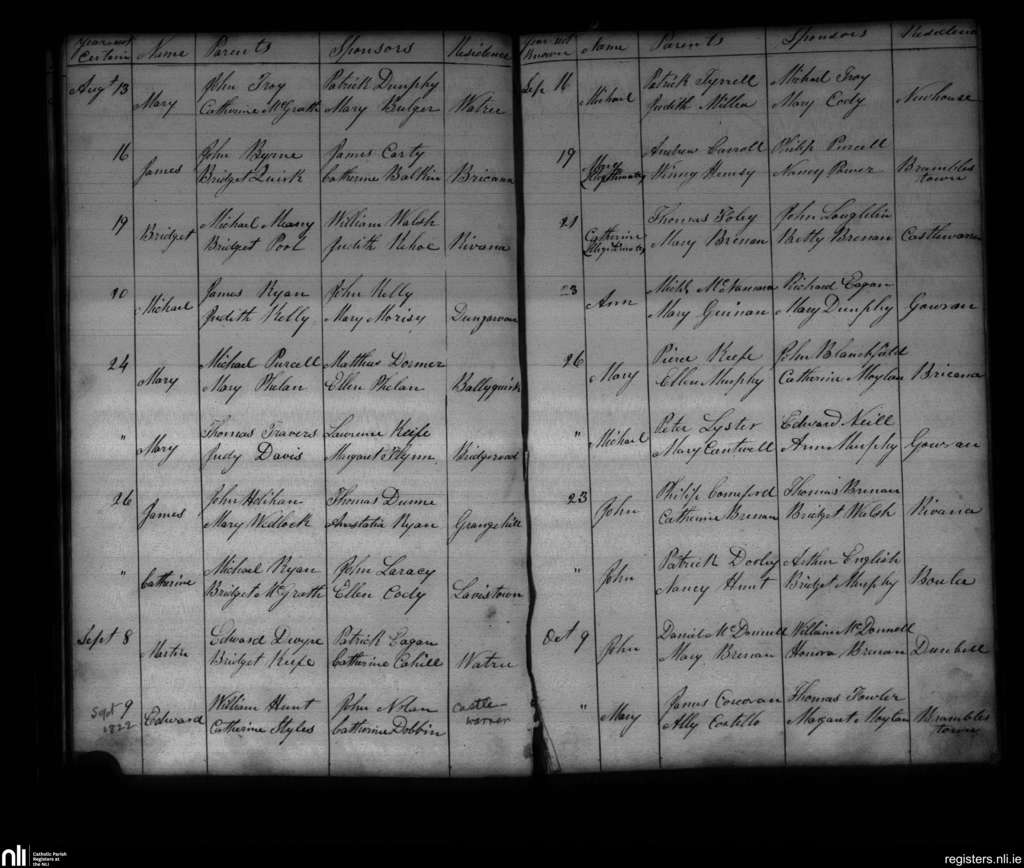 Year not Certain Name Parents Sponsors Residence
Augt 13 Mary John Troy Patrick Dunphy
Catherine McGrath Mary Bulger Watree
16 James John Byrne James Carty
Bridget Quirk Catherine Bricana
19 Bridget Michael Meany William Walsh
Bridget Poor Judith Kehoe Rivana
20 Michael James Ryan John Kelly
Judith Kelly Mary Morisy Dungarvan
24 Mary Michael Purcell Matthew Dormer
Mary Phelan Ellen Phelan Ballyquirk
" Mary Thomas Travers Lawrence Keife
Judy Davis Margaret Flynn
26 James John Holihan Thomas Dunne
Mary Wedlock Anstatia Ryan Grangehill
" Catherine Michael Ryan John Laracy
Bridget McGrath Ellen Cody Lavistown
Sept 8 Martin Edward Dwyre Patrick Eagan
Bridget Keefe Catherine Cahill Watree
Sept 9 1822 Edward William Hunt John Nolan castle-
Catherine Styles Catherine Dobbin warren
Year not Known Name Parents Sponsors Residence
Sep 16 Michael Patrick Tyrrell Michael Troy
Judith Mary Cody Newhouse
19 Mary Andrew Carroll Philip Purcell
Illegitimate Winny Nancy Power Brambles
town
21 Catherine Thomas Foley John Loughlin
Illegitimate Mary Brenan Betty Brenan Castlewarren
23 Ann Michl McNamara Richard Eagan
Mary Guinan Mary Dunphy Gowran
26 Mary Pierce Keefe John Blanchfield
Ellen Murphy Catherine Moylan Bricana
" Michael Peter Lyster Edward Neill
Mary Cantwell Ann Murphy Gowran
23 John Philip Comeford Thomas Brenan
Catherine Brenan Bridget Walsh Rivana
" John Patrick Dooley Arthur English
Nancy Hunt Bridget Murphy Boula
Oct 9 John Daniel McDonnell William McDonnell
Mary Brenan Honora Brenan Dunbell
" Mary James Corcoran Thomas Fowler
Ally Costillo Margaret Moylan Brambles
town
nli Catholic Parish
Registers at
the NLI
registers.nli.ie